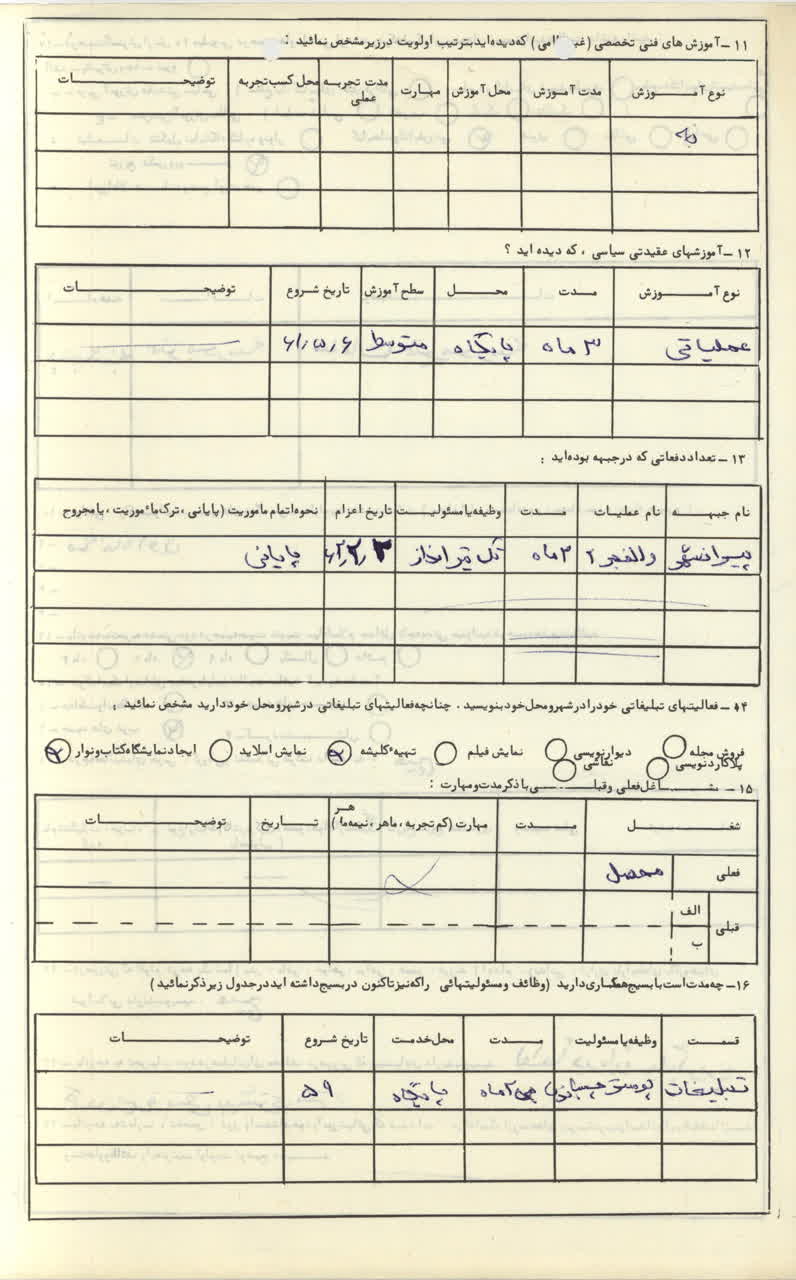 ۱۱ – آموزش های فنی تخصصی (غیر نظامی) که دیده اید بترتیب اولویت در زیر مشخص نمائید :
نوع آمـــوزش مدت آمـوزش محل آموزش مهارت مدت تجربه عملی محل کسب تجربه توضیحـــات
نه
۱۲ – آموزشهای عقیدتی سیاسی ، که دیده اید ؟
نوع آمـــوزش مــدت محـــل سطح آموزش تاریخ شروع توضیحـــات
عملیاتی ۳ ماه پایگاه متوسط ۶۱٫۵٫۶
۱۳ – تعداد دفعاتی که در جبهه بوده اید :
نام جبهـــه نام عملیـات مــدت وظیفه یا مسئولیـت تاریخ اعزام نحوه اتمام ماموریت (پایانی ، ترک مأموریت ، یا مجروح
پیرانشهر والفجر ۲ ۳ ماه تک تیر انداز پایانی
۱۴ – فعالیتهای تبلیغاتی خود را در شهر و محل خود بنویسید . چنانچه فعالیتهای تبلیغاتی در شهر و محل خود دارید مشخص نمائید :
فروش مجله دیوارنویسی نمایش فیلم تهیه کلیشه نمایش اسلاید ایجاد نمایشگاه کتاب و نوار
پلاکارد نویسی نقاشی
۱۵ – مشـــاغل فعلی و قبلــی با ذکر مدت و مهارت :
شغـــل مــدت مهارت (کم تجربه ، ماهر ، نیمه ماهر) تـاریخ توضیحـــات
فعلی محصل
قبلی الف
ب
۱۶ – چه مدت است با بسیج همکاری دارید (وظائف و مسئولیتهائی را که نیز تاکنون در بسیج داشته اید در جدول زیر ذکر نمائید)
قسمــت وظیفه یا مسئولیت مــدت محل خدمت تاریخ شروع توضیحـــات
تبلیغات پوستر چسبانی ۲ ماه پایگاه ۵۹